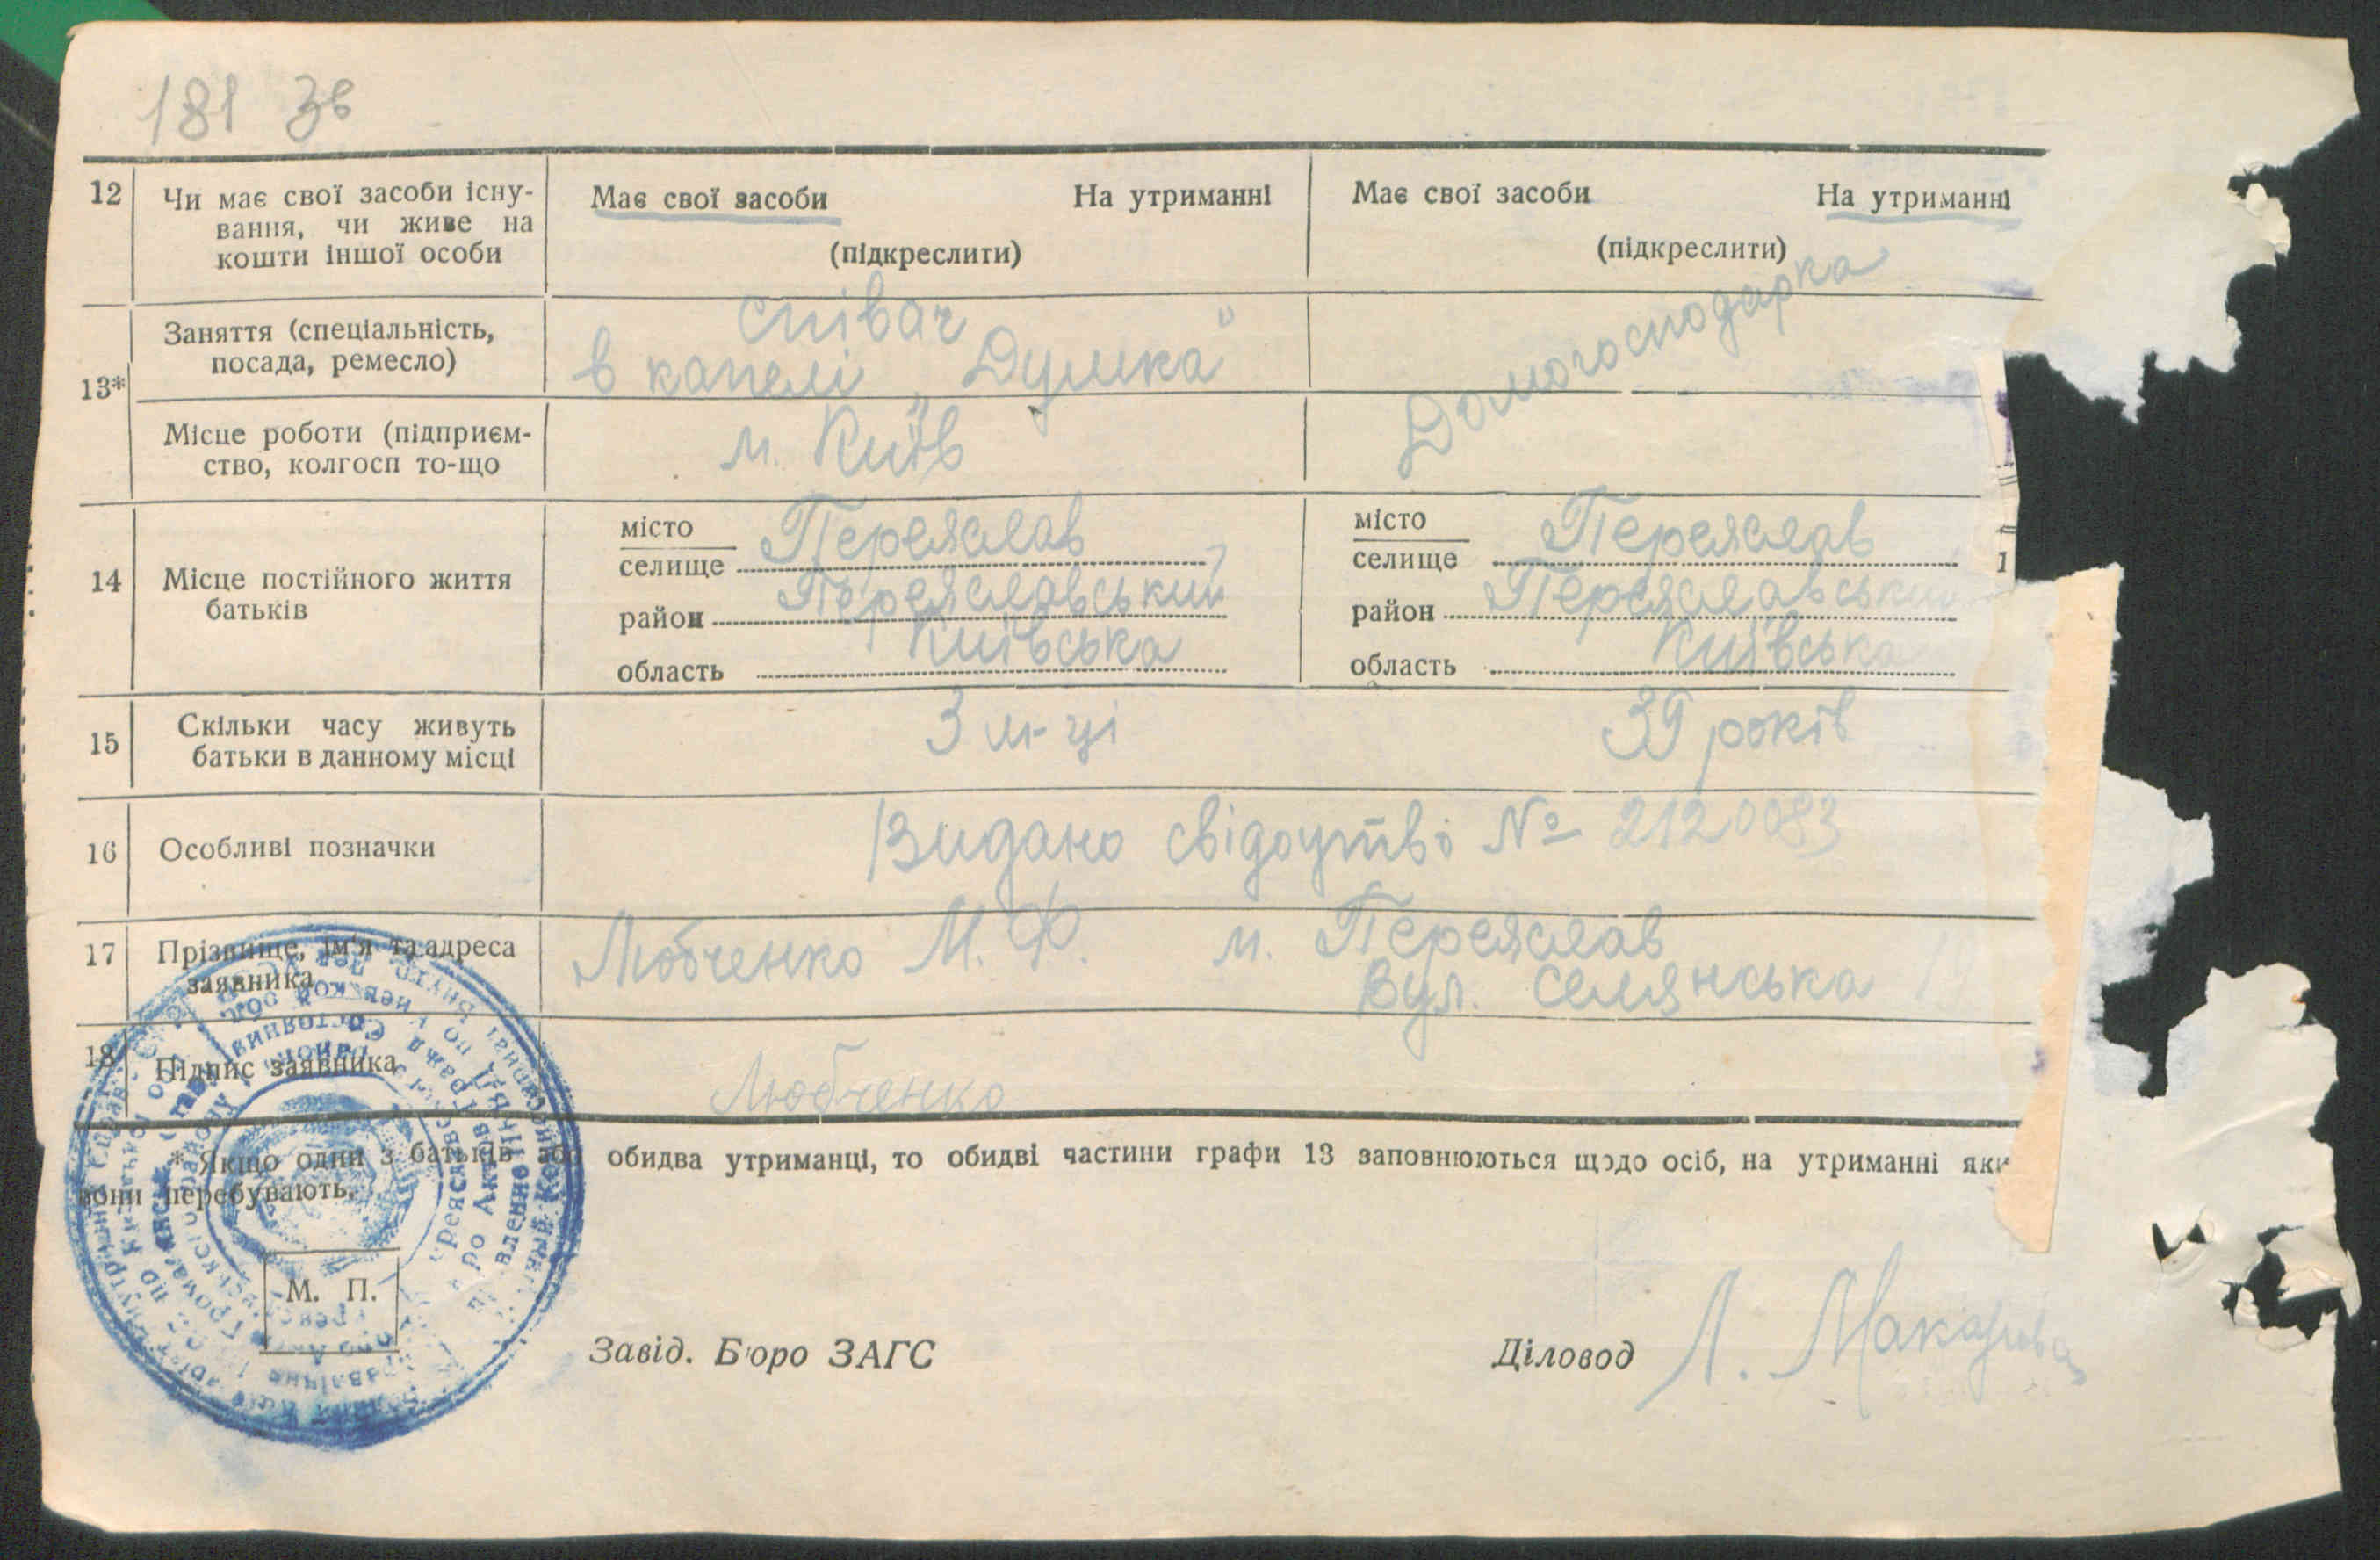 181 зв
12 Чи має свої засоби існу-
вання, чи живе на
кошти іншої особи
Має свої засоби На утриманні
(підкреслити)
Має свої засоби На утриманні
(підкреслити)
13*
Заняття (спеціальність,
посада, ремесло)
співач
в капелі „Думка"
Домогосподарка
Місце роботи (підприєм-
ство, колгосп то-що
м. Київ
14 Місце постійного життя
батьків
місто
селище Переяслав
район Переяславський
область Київська
місто
селище Переяслав
район Переяславський
область Київська
15 Скільки часу живуть
батьки в данному місці
3 м-ці
39 років
16 Особливі позначки
Видано свідоцтво № 2120083
17 Прізвище, ім'я та адреса
заявника
Любченко М. Ф. м. Переяслав
Вул. Селянська
18 Підпис заявника
Любченко
* Якщо один з батьків або обидва утриманці, то обидві частини графи 13 заповнюються щодо осіб, на утриманні яки
вони перебувають.
М. П.
Завід. Бюро ЗАГС
Діловод Л. Макарова